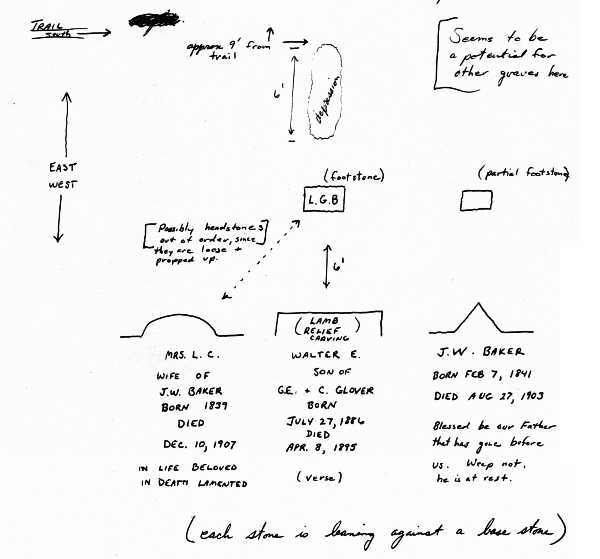 TRAIL
South
approx 9' from
trail
6'
depression
Seems to be
a potential for
other graves here
EAST
WEST
(footstone)
L.G.B
(partial footstone)
[Possibly headstones]
out of order, since
they are loose +
propped up.
6'
(LAMB
RELIEF
CARVING)
MRS. L. C.
WIFE OF
J.W. BAKER
BORN 1839
DIED
DEC. 10, 1907
IN LIFE BELOVED
IN DEATH LAMENTED
WALTER E.
SON OF
G.E. + C. GLOVER
BORN
JULY 27, 1886
DIED
APR. 8, 1895
(verse)
J.W. BAKER
BORN FEB 7, 1841
DIED AUG 27, 1903
Blessed be our Father
that has gone before
us. Weep not,
he is at rest.
(each stone is leaning against a base stone)